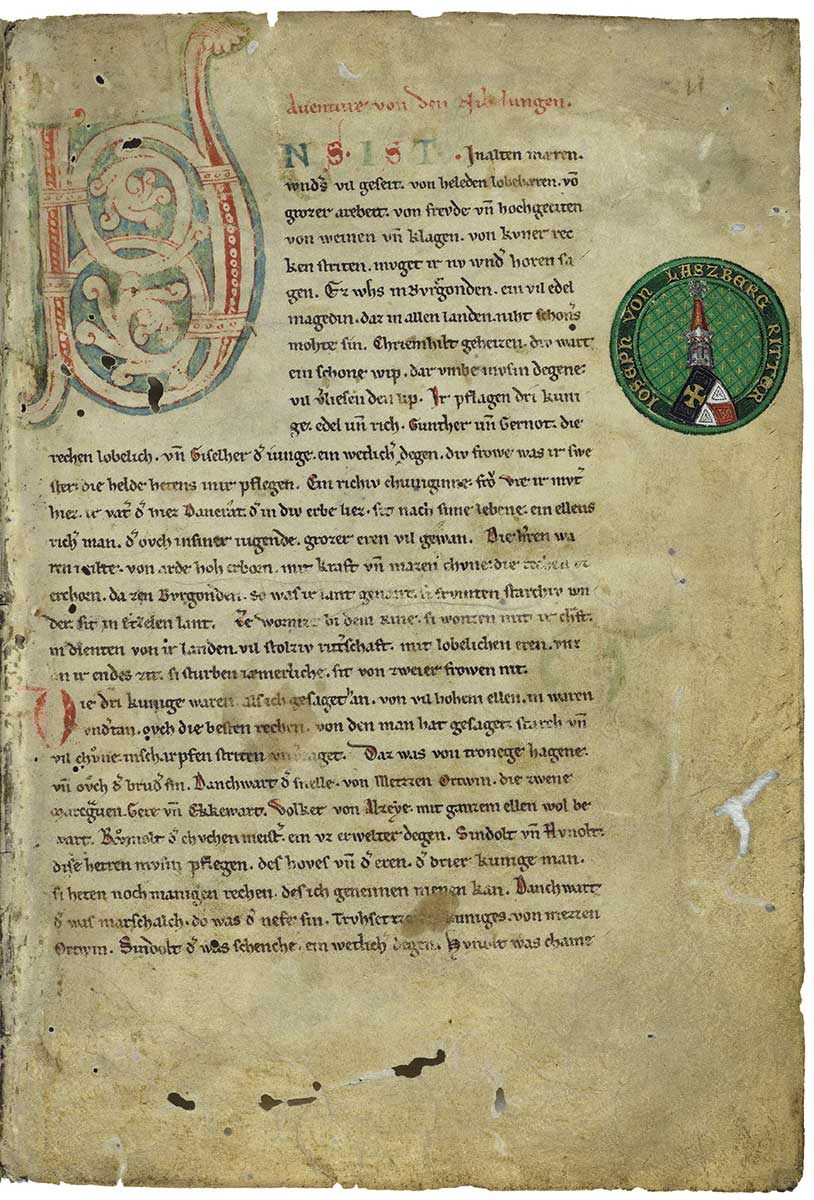 Auenture von den Nibelungen.
VNS. IST. In alten mæren.
wndˢ vil geseit. von heleden lobebæren. võ
grozer arebeit. von frevde vñ hochgeciten
von weinen vñ klagen. von kvner rec
ken striten. mvget ir nv wndˢ horen sa
gen. Ez whs in Bvrgonden. ein vil edel
magedin. daz in allen landen. niht schoñs
mohte sin. Chriemhilt geheizen. div wart
ein schone wip. dar vmbe mvsin degene.
vil vˢliesen den lip. Ir pflagen dri kuni
ge. edel vñ rich. Gunther vñ Gernot. die
rechen lobelich. vñ Giselher dˢ iunge. ein wetlich degen. div frowe was ir swe
ster. die helde hetens inir pflegen. Ein richiv chuniginne. frŏ Vte ir mvtˢ
hiez. ir vatˢ dˢ hiez Dancrat. dˢ in div erbe liez. sit nach sime lebene. ein ellens
rich man. dˢ ovch in siner iugende. grozer eren vil gewan. Die hˢren wa
ren milte. von arde hoh erborn. mit kraft vñ mazen chvne. die rechen vz
erchorn. da zen Bvrgonden. so was ir lant genant. si frvmten starchiv wn
der. sit in Etzelen lant. Ze wormze bi dem Rine. si wonten mit ir chˢft.
in dienten von ir landen. vil stolziv ritˢschaft. mit lobelichen eren. vnz
an ir endes zit. si sturben iæmerliche. sit von zweier frowen nit.
Die dri kunige waren. als ich gesaget han. von vil hohem ellen. in waren
vndˢtan. ovch die besten rechen. von den man hat gesaget. starch vñ
vil chvne. in scharpfen striten vnverzaget. Daz was von tronege hagene.
vñ ovch dˢ brvdˢ sin. Danchwart dˢ snelle. von Metzzen Ortwin. die zwene
maregˢuen. Gere vñ Ekkewart. Volker von Alzeye. mit ganzem ellen wol be
wart. Rvmolt dˢ chvchen meistˢ. ein vz erwelter degen. Sindolt vñ Hvnolt.
dise herren mvsin pflegen. des hoves vñ dˢ eren. dˢ drier kunige man.
si heten noch manigen rechen. des ich genennen nienen kan. Danchwart
dˢ was marschalch. do was dˢ nefe sin. Trvhsetze des kuniges. von metzen
Ortwin. Sindolt dˢ was schenche. ein wetlich degen. Hvnolt was chame
IOSEPH VON LASZBERG RITTER